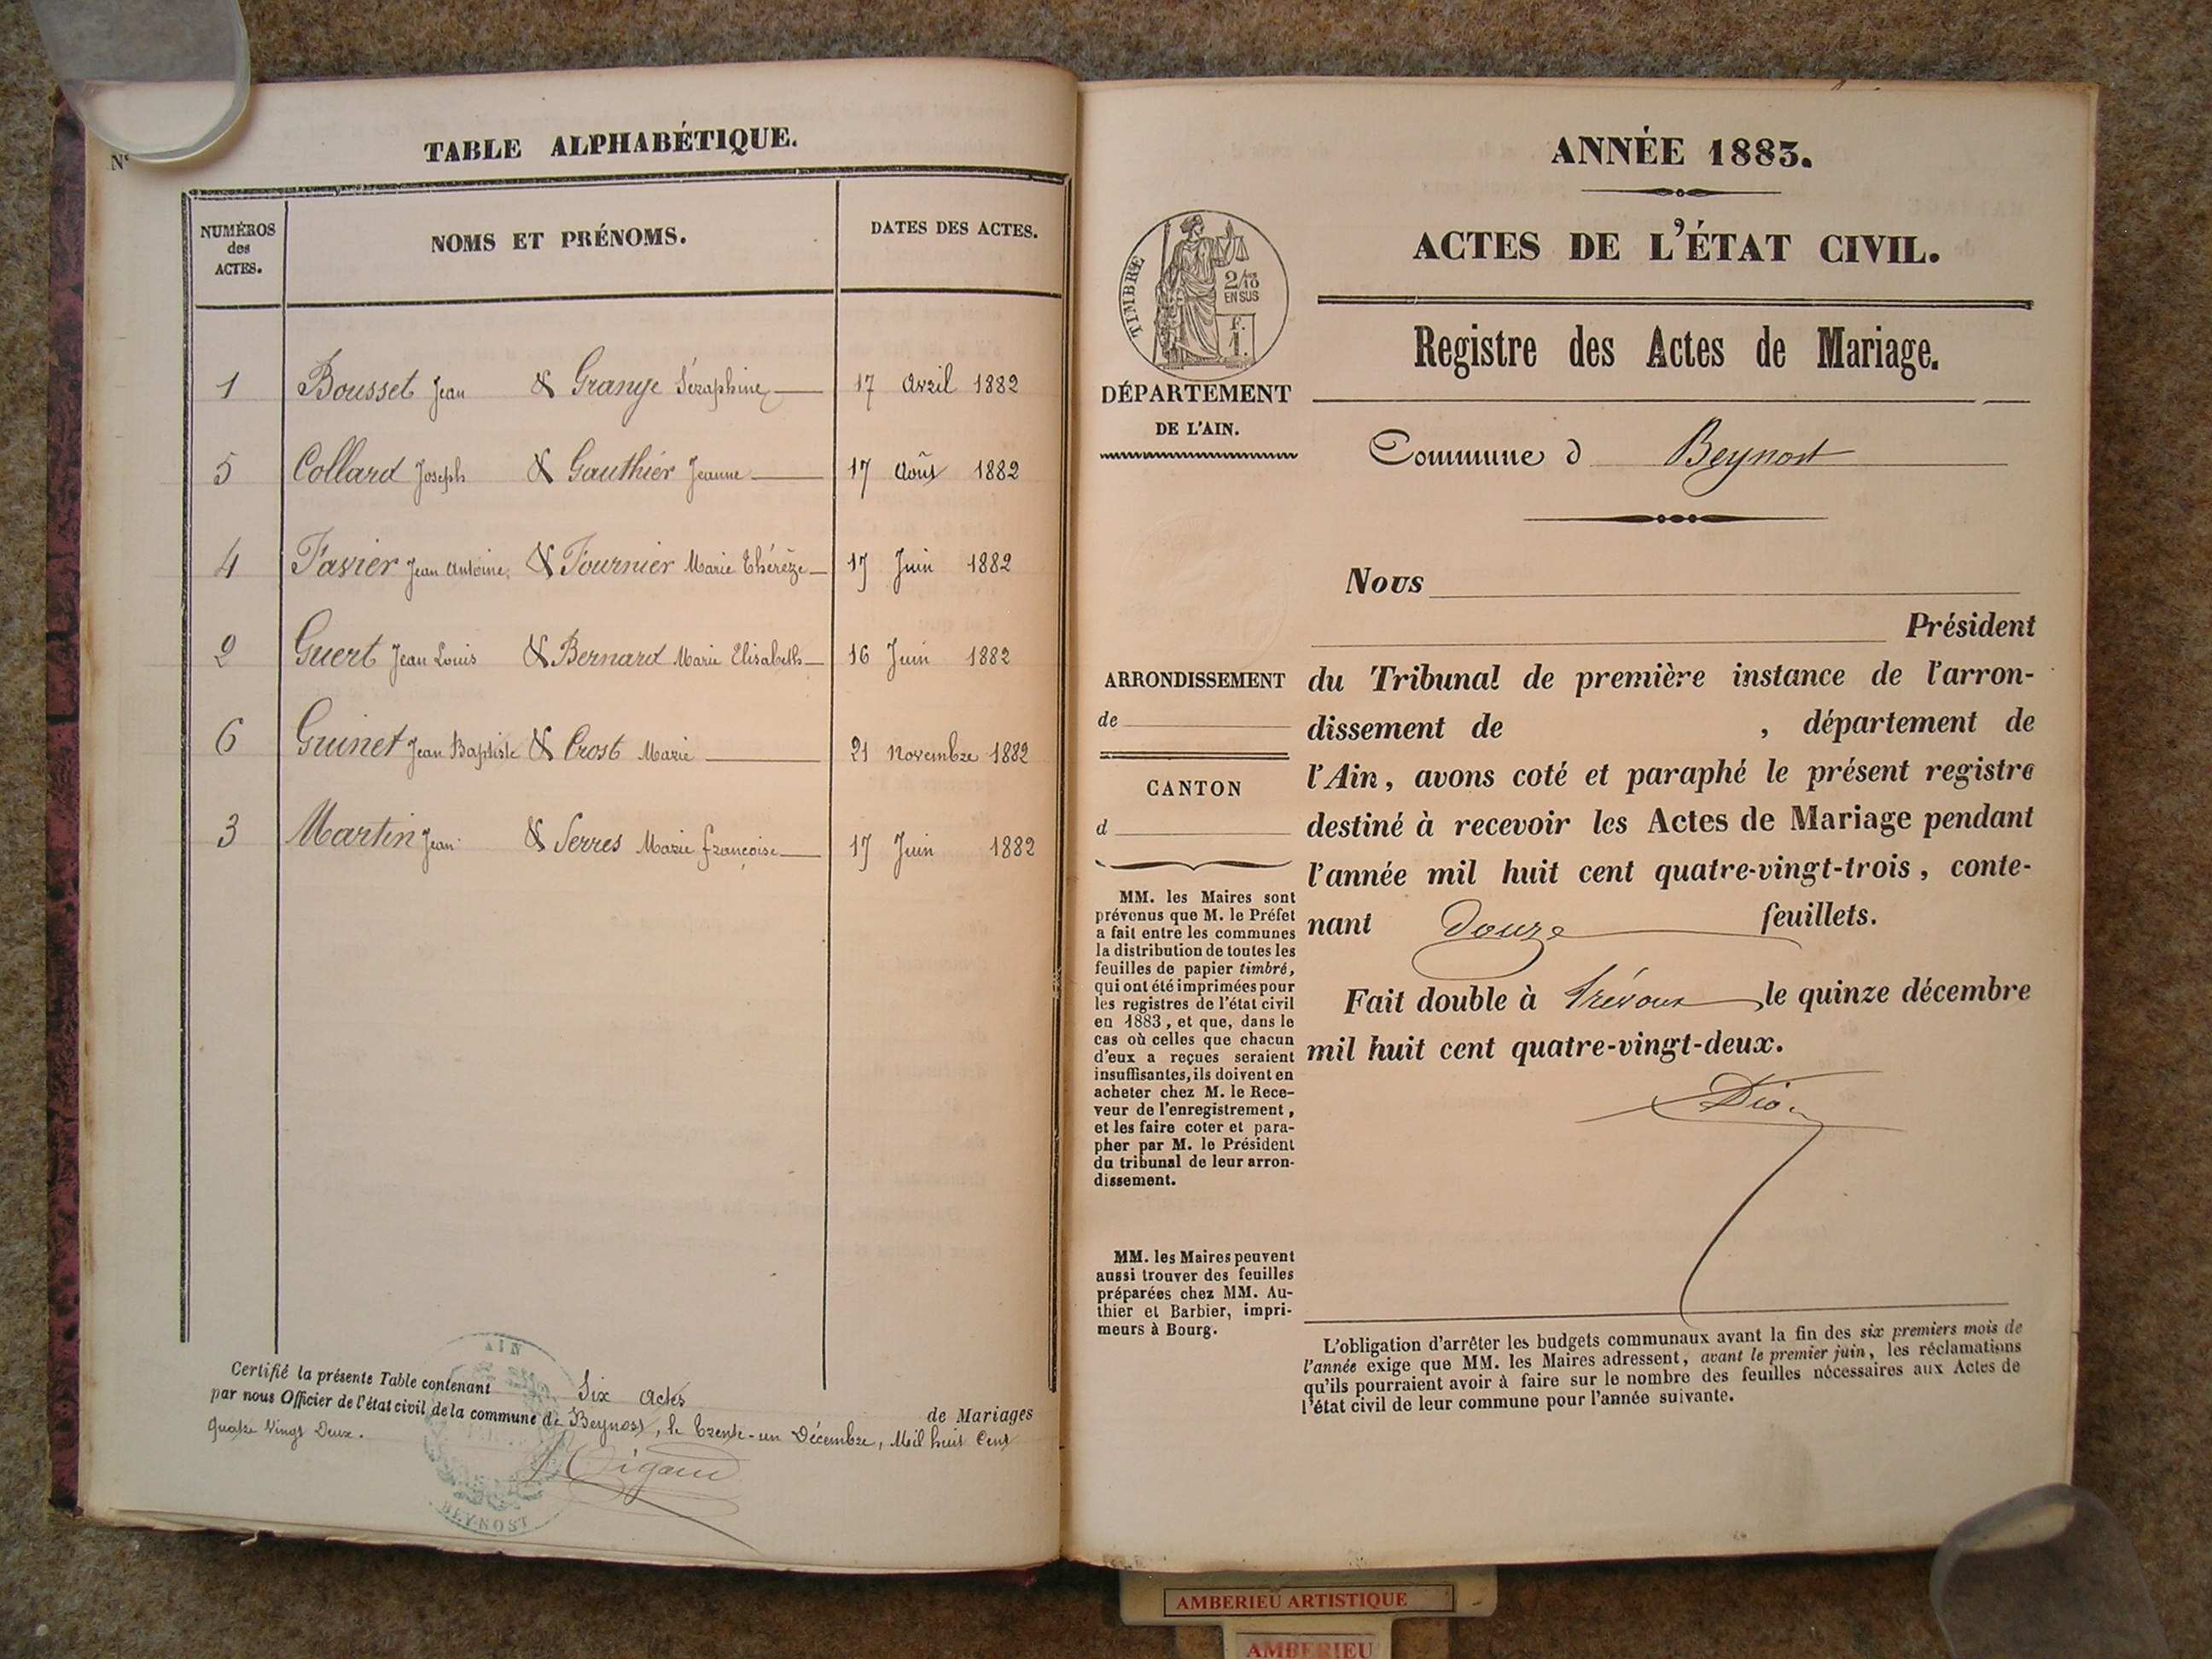 N°
TABLE ALPHABÉTIQUE.
NUMÉROS
des
ACTES.
NOMS ET PRÉNOMS.
DATES DES ACTES.
1 Bousset Jean & Grange Séraphine 17 Avril 1882
5 Collard Joseph & Gauthier Jeanne 17 Août 1882
4 Favier Jean Antoine, & Fournier Marie Thérèze 17 Juin 1882
2 Guert Jean Louis & Bernard Marie Elisabeth 16 Juin 1882
6 Guinet Jean Baptiste & Crost Marie 21 Novembre 1882
3 Martin Jean & Serres Marie françoise 17 Juin 1882
Certifié la présente Table contenant Six Actes de Mariages
par nous Officier de l'état civil de la commune de Beynost, le trente-un Décembre, Mil huit Cent
quatre Vingt Deux.
AIN
BEYNOST
ANNÉE 1883.
ACTES DE L'ÉTAT CIVIL.
Registre des Actes de Mariage.
Commune d Beynost
TIMBRE
2/10
EN SUS
F.
1.
DÉPARTEMENT
DE L'AIN.
ARRONDISSEMENT
de
CANTON
d
MM. les Maires sont
prévenus que M. le Préfet
a fait entre les communes
la distribution de toutes les
feuilles de papier timbré,
qui ont été imprimées pour
les registres de l'état civil
en 1883, et que, dans le
cas où celles que chacun
d'eux a reçues seraient
insuffisantes, ils doivent en
acheter chez M. le Rece-
veur de l'enregistrement,
et les faire coter et para-
pher par M. le Président
du tribunal de leur arron-
dissement.
MM. les Maires peuvent
aussi trouver des feuilles
préparées chez MM. Au-
thier et Barbier, impri-
meurs à Bourg.
Nous
Président
du Tribunal de première instance de l'arron-
dissement de , département de
l'Ain, avons coté et paraphé le présent registre
destiné à recevoir les Actes de Mariage pendant
l'année mil huit cent quatre-vingt-trois, conte-
nant douze feuillets.
Fait double à Trévoux le quinze décembre
mil huit cent quatre-vingt-deux.
L'obligation d'arrêter les budgets communaux avant la fin des six premiers mois de
l'année exige que MM. les Maires adressent, avant le premier juin, les réclamations
qu'ils pourraient avoir à faire sur le nombre des feuilles nécessaires aux Actes de
l'état civil de leur commune pour l'année suivante.
AMBERIEU ARTISTIQUE
AMBERIEU